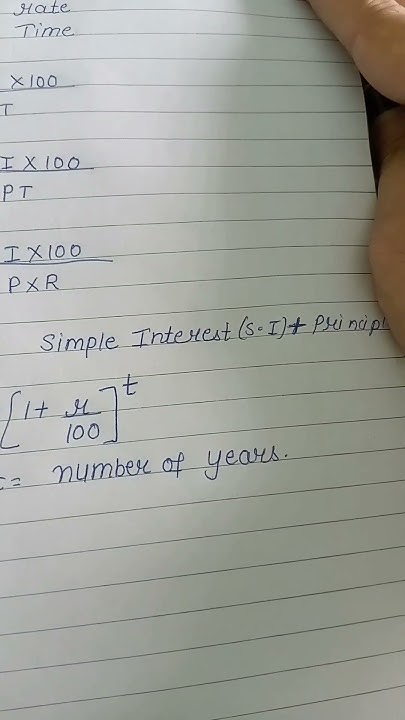 Rate
Time
X100
T
I X 100
PT
I X100
PXR
Simple Interest (S.I)+ Princip
[1+ r/100]^t
= number of years.